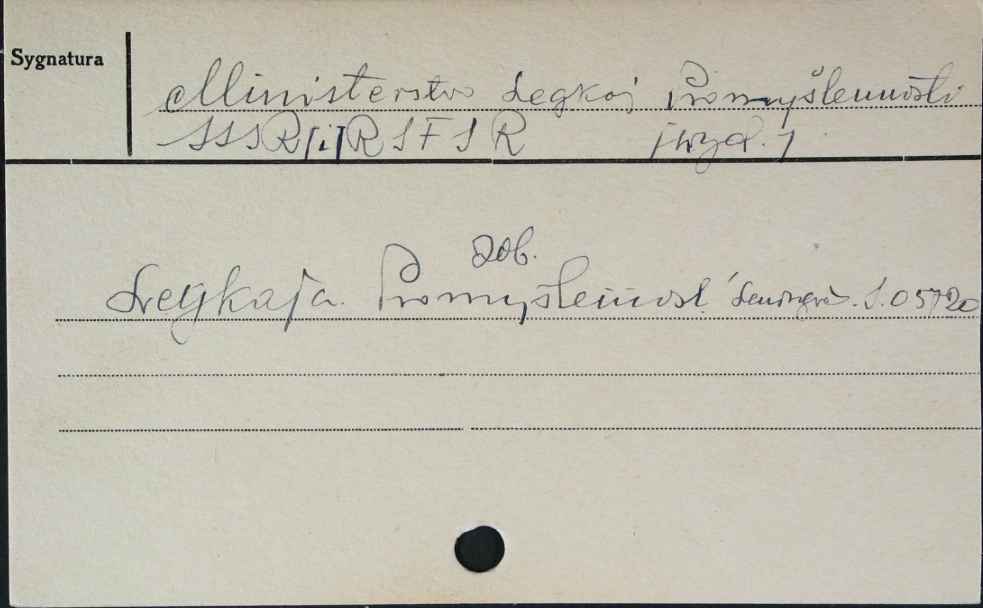 Sygnatura
Ministerstvo Legkoj Promyšlennosti
SSSR [i] RSFSR [wyd.]
Zob.
Legkaja Promyšlennost' Leningrad. S. 05720